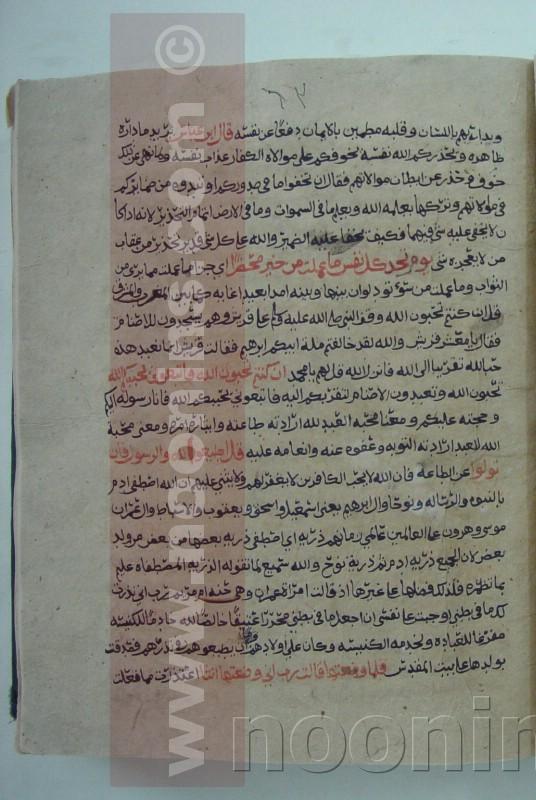 ويداريهم باللسان و قلبه مطمين بالايمان دفعا عن نفسه قال ابن عباس يريد مداراة
ظاهرة و يحذركم الله نفسه يخوفكم على موالاة الكفار عذاب نفسه
خوف و حذر عن ابطان موالاتهم فقال ان تخفوا ما في صدوركم او تبدوه من ضمايركم
في موالاتهم و تركها يعلمه الله و يعلم ما في السموات وما في الارض اتماما للتحذير لانه اذا كا
ن لا يخفى عليه شي فيهما فكيف يخفا عليه الضمير والله على كل شي قدير تحذير من عقاب
من لا يعجزه شي يوم تجد كل نفس ما عملت من خير محضرا اي جزا ما عملت مما يرى من
الثواب وما عملت من سوء تود لو ان بينها و بينه امدا بعيدا غاية كما بين المشرق والمغرب
قل ان كنتم تحبون الله وقف النبي صلى الله عليه على قريش وهم يسجدون للاصنام
فقال يا معشر قريش والله لقد خالفتم ملة ابيكم ابرهيم فقالت قريش انما نعبد هذه
حبا لله تقربنا الى الله فانزل الله قل لهم يا محمد ان كنتم تحبون الله فاتبعوني يحببكم الله
تحبون الله و تعبدون الاصنام لتقربكم اليه فاتبعوني يحببكم الله فانا رسوله اليكم
و حجته عليكم و معنا محبة العبد لله ارادته طاعته و ايثاره امره و معنى محبة
الله للعبد ارادته الثوبه و عفوه عنه و انعامه عليه قل اطيعوا الله والرسول فان
تولوا عن الطاعة فان الله لا يحب الكافرين لا يغفر لهم ولا يثني عليهم ان الله اصطفى ادم
بالنبوة و الرسالة و نوحا وال ابرهيم يعنى اسمعيل و اسحق و يعقوب والاسباط وال عمران
موسى وهرون على العالمين عالمي زمانهم ذرية اي اصطفى ذرية بعضها من بعض من ولد
بعض لان الجميع ذرية ادم ثم ذرية نوح والله سميع لما تقوله الذرية المصطفاة عليم
بما تضمره فلذلك فضلها على غيرها اذ قالت امراة عمران وهي حنه ام مريم رب اني نذرت
لك ما في بطني اوجبت على نفسي ان اجعل ما في بطني محررا عتيقا خالصا لله خادما للكنيسة
مفرغا للعبادة و لخدمة الكنيسة وكان على اولادهم ان يطيعوهم في نذرهم فتصدقت
بولدها على بيت المقدس فلما وضعتها قالت رب اني وضعتها انثى اعتذرت مما فعلت
www.noormags.com ©
noorin